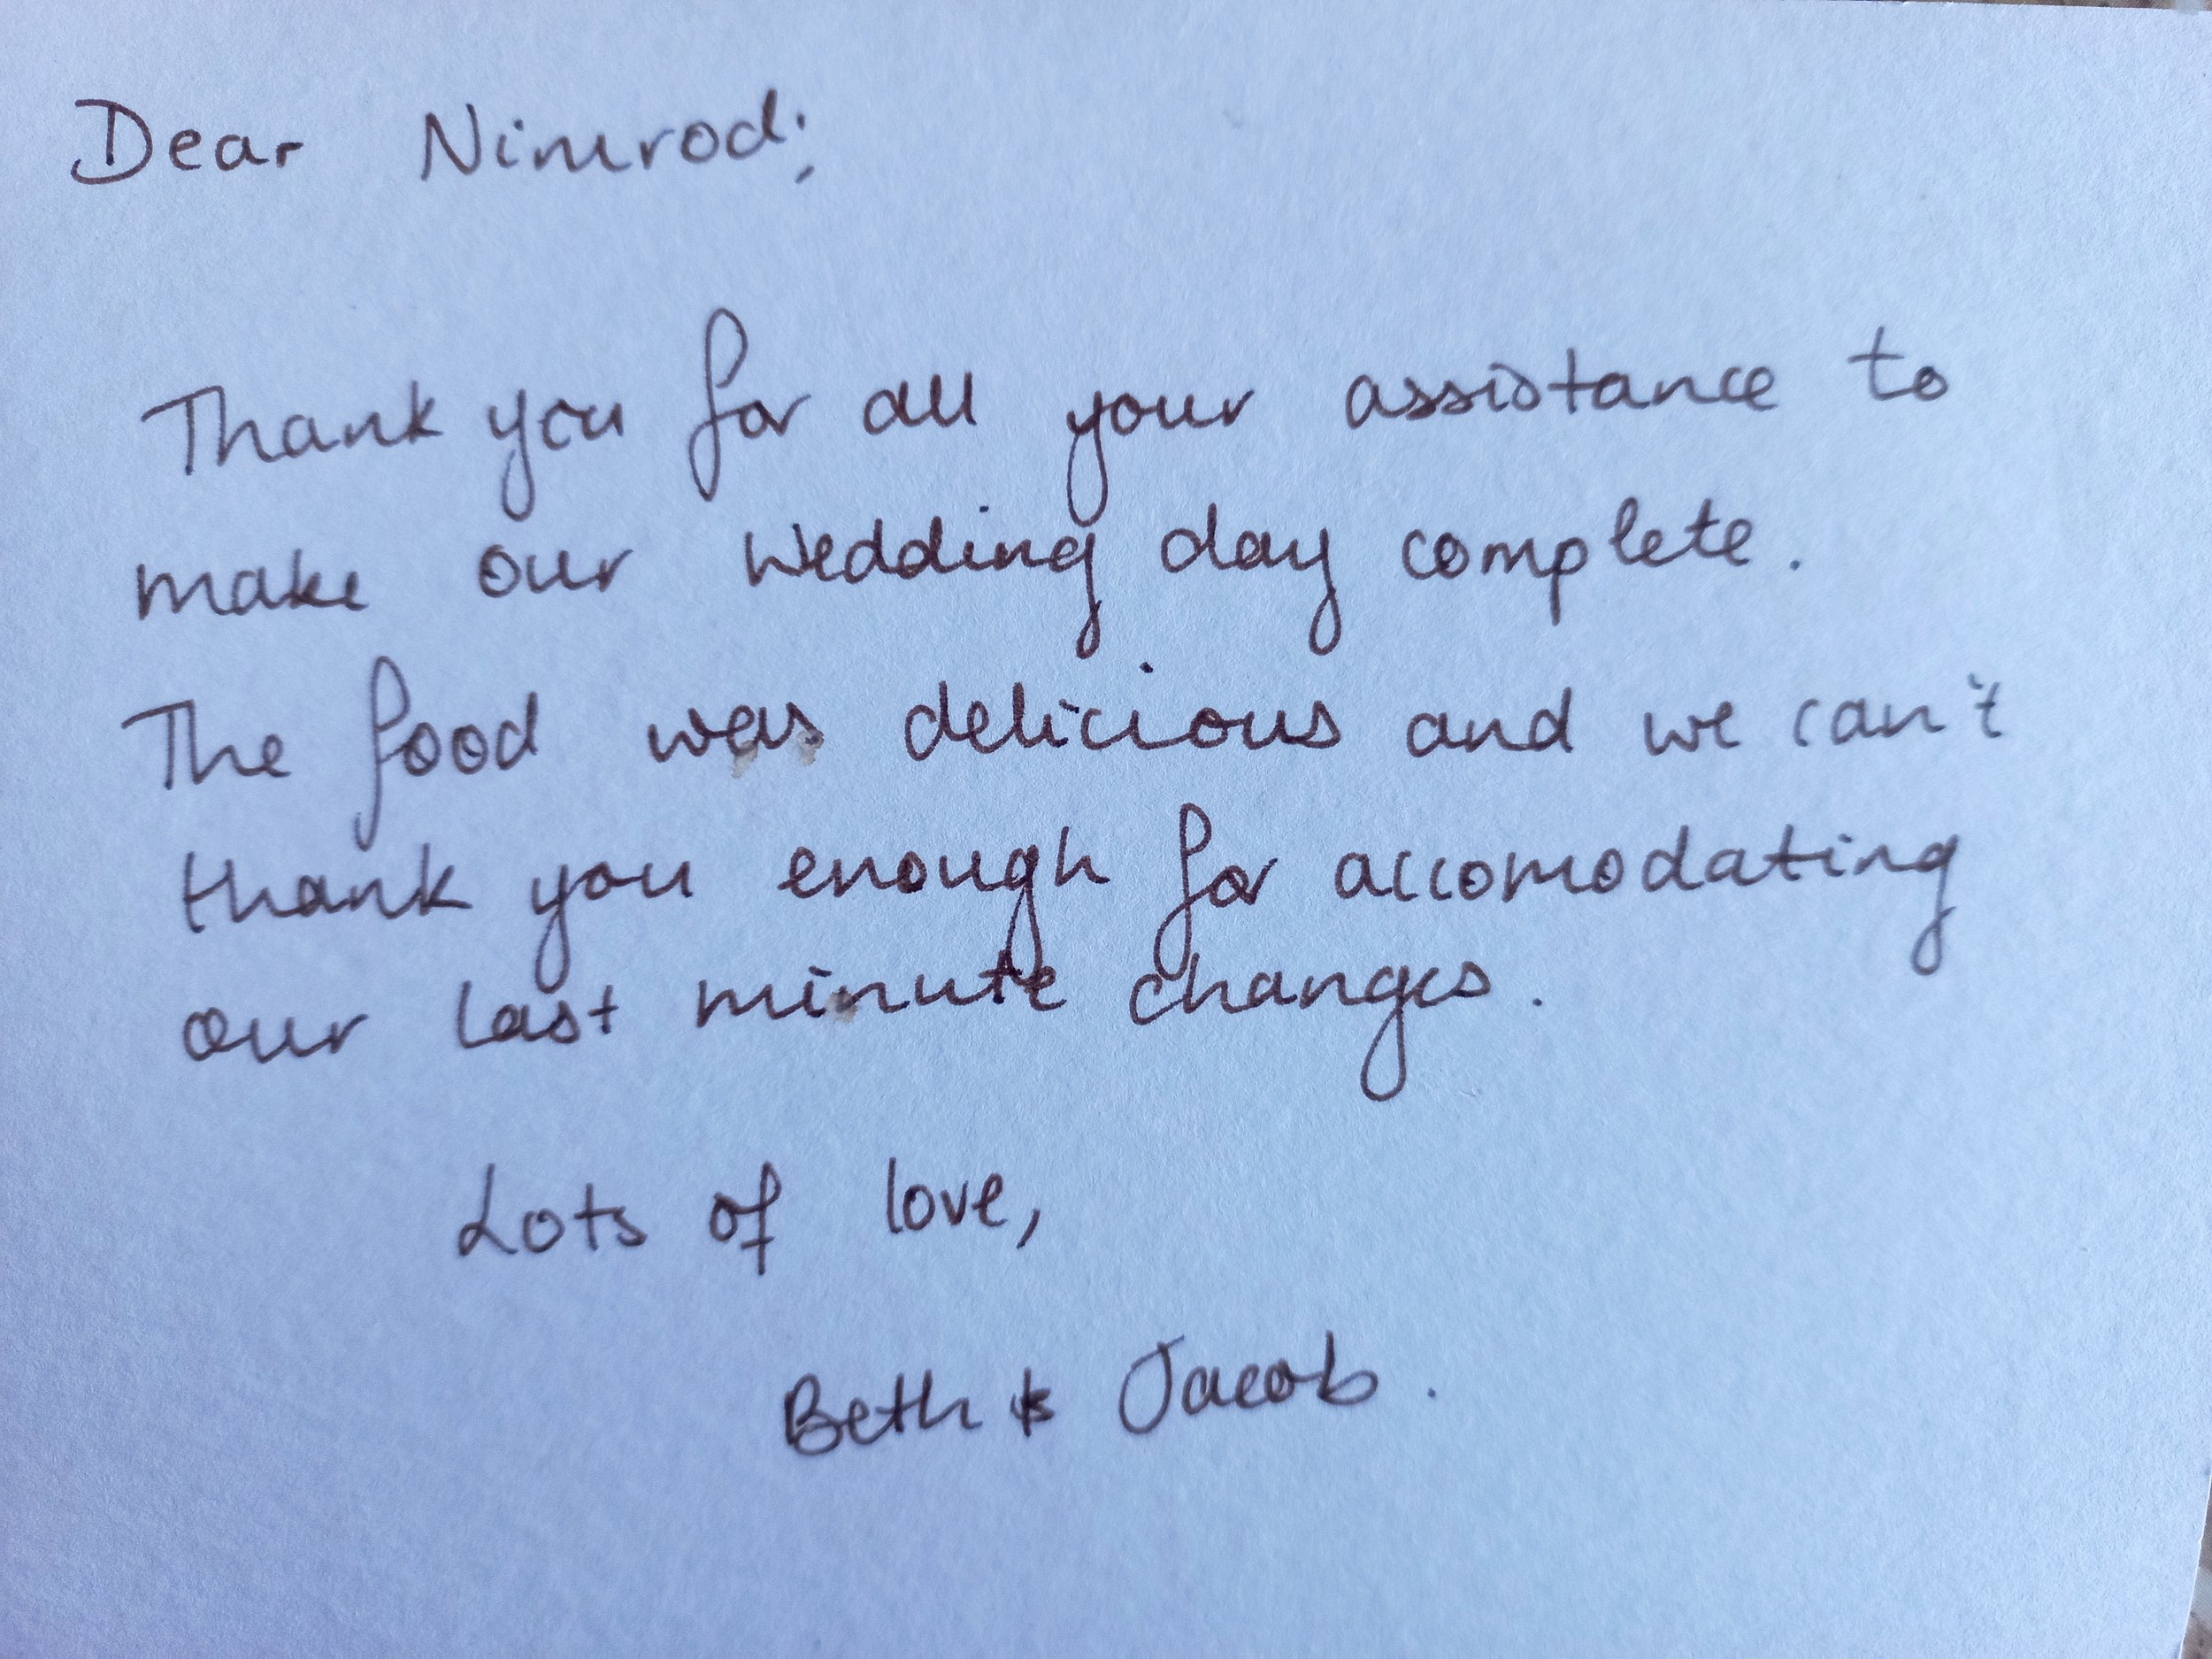 Dear Nimrod;
Thank you for all your assistance to
make our wedding day complete.
The food was delicious and we can't
thank you enough for accomodating
our last minute changes.
Lots of love,
Beth & Jacob.